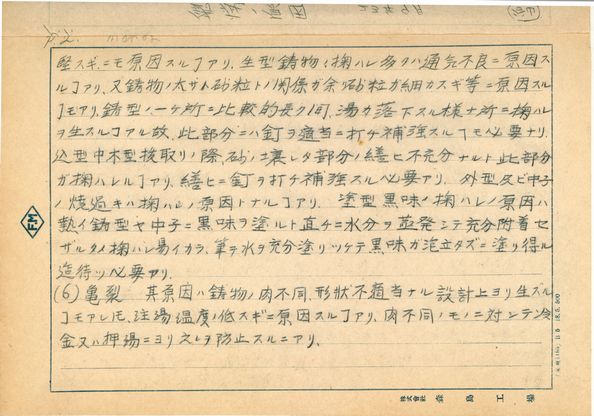 堅スギニモ原因スルヿアリ、生型鋳物ノ掬ハレ多クハ通気不良ニ原因ス
ルヿアリ、又鋳物ノ太サト砂粒トノ関係ガ余リ砂粒ガ細カスギ等ニ原因スル
ヿモアリ、鋳型ノ一ケ所ニ比較的長ク同湯カ落下スル様ナ所ニ掬ハレ
ヲ生スルヿアル故、此部分ニハ釘ヲ適当ニ打チ補強スルヿモ必要ナリ、
込型中木型抜取リノ際、砂ノ壊レタ部分ノ繕ヒ不充分ナルト此部分
ガ掬ハレルヿアリ、繕ヒニ釘ヲ打チ補強スル必要アリ、 外型及ビ中子
ノ焼過キハ掬ハレノ原因トナルヿアリ、 塗型黒味ノ掬ハレノ原因ハ
熱イ鋳型ヤ中子ニ黒味ヲ塗ルト直チニ水分ヲ蒸発シテ充分附着セ
ザルタメ掬ハレ易イカラ、筆ヲ水ヲ充分塗リツケテ黒味ガ泡立タズニ塗リ得ル
迄待ツ必要アリ、
(6) 亀裂 其原因ハ鋳物ノ肉不同、形状不適当ナル設計上ヨリ生ズル
ヿモアレ圧、注湯温度ノ低スギニ原因スルヿアリ、肉不同ノモノニ対シテ冷
金又ハ押湯ニヨリ之レヲ防止スルニアリ、
FM
株式会社 森島工場